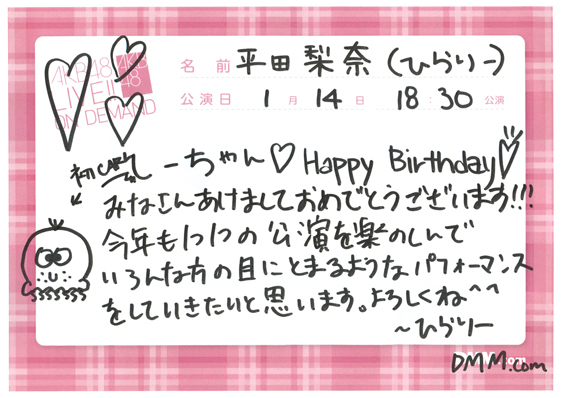 AKB48
LIVE!!
ON DEMAND
AKB
48
名前 平田梨奈（ひらりー）
公演日 1月14日 18:30公演
ーちゃん♡ Happy Birthday♡
みなさんあけましておめでとうございます!!!
今年も1つ1つの公演を楽のしんで
いろんな方の目にとまるようなパフォーマンス
をしていきたいと思います。よろしくね^^
～ひらりー
DMM.com